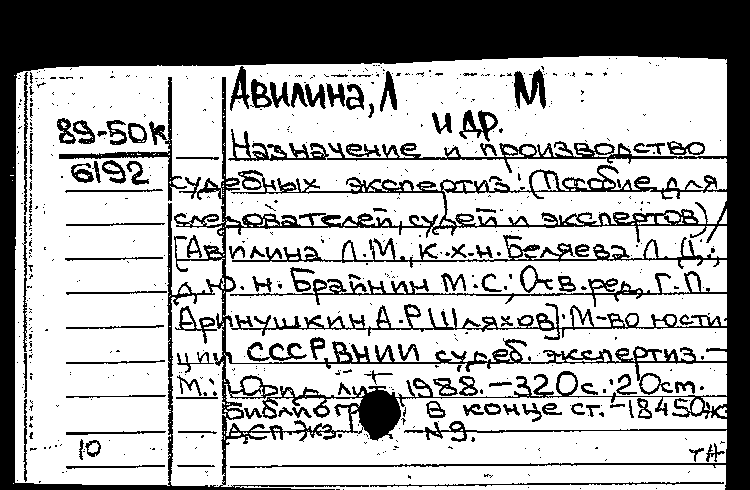 Авилина, Л М
и др.
89-50к
6192
Назначение и производство
судебных экспертиз: (Пособие для
следователей, судей и экспертов) /
[Авилина Л.М., к.х.н. Беляева Л.Д.;
д.ю.н. Брайнин М.С.; Отв. ред. Г.П.
Аринушкин, А.Р. Шляхов]; М-во юсти-
ции СССР, ВНИИ судеб. экспертиз. —
М.: Юрид. лит., 1988. — 320 с.; 20 см.
Библиогр. В конце ст. — 18450 экз
ДСП. Экз. — N 9.
10
ТА